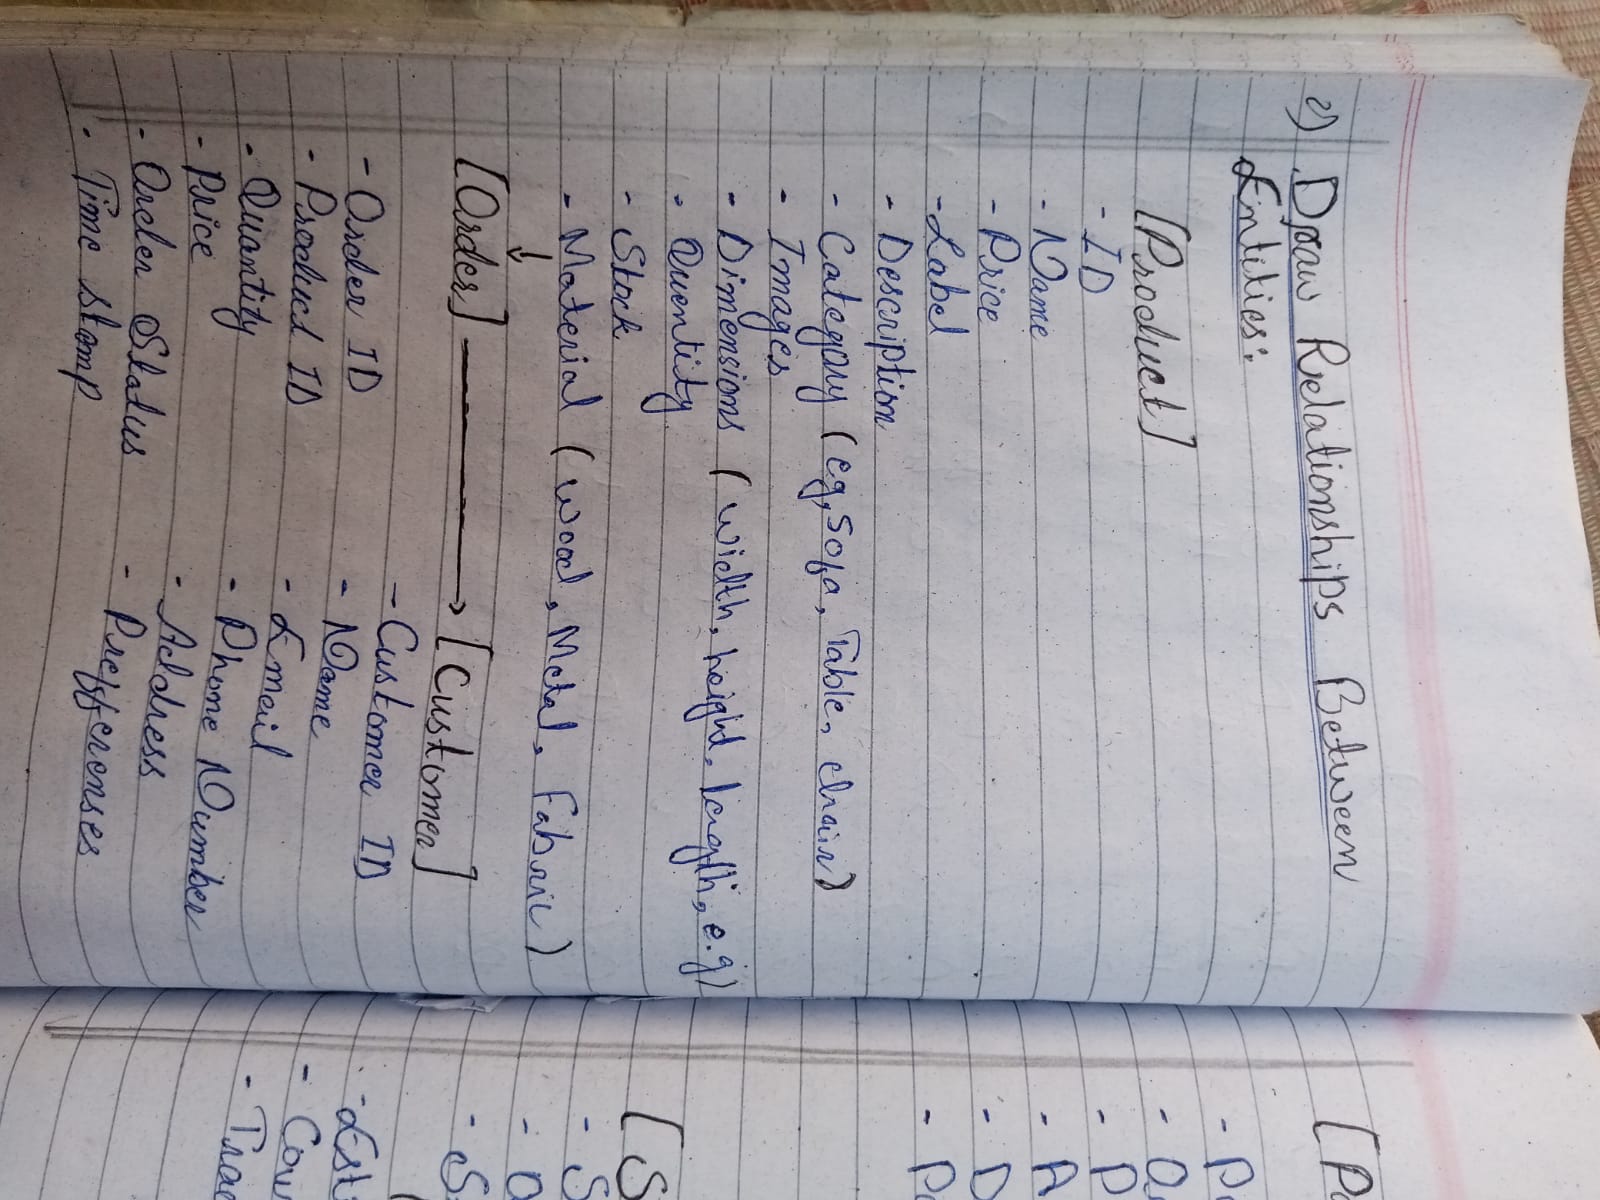 2) Draw Relationships Between
Entities:
[Product]
- ID
- Name
- Price
- Label
- Description
- Category (eg, Sofa, Table, chair)
- Images
- Dimensions (width, height, length, e.g)
- Quentity
- Stock
- Material (wood, Metal, Fabric)
↓
[Order] → [Customer]
- Order ID
- Product ID
- Quantity
- Price
- Order Status
- Time stamp
- Customer ID
- Name
- Email
- Phone Number
- Address
- Prefferenses